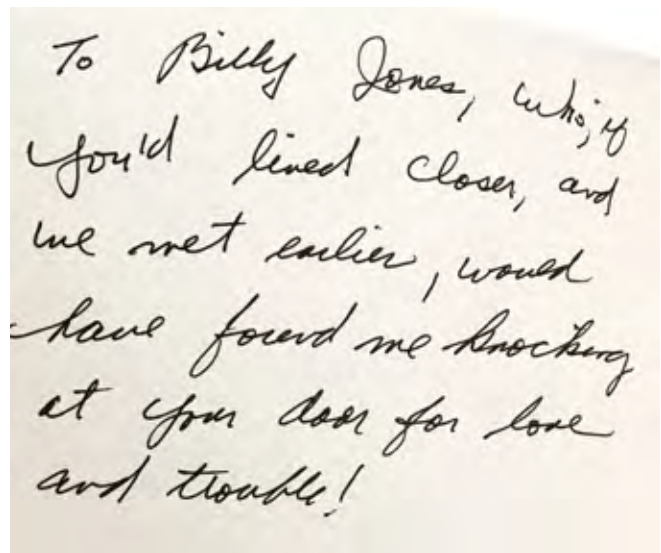 To Billy Jones, who, if
you'd lived closer, and
we met earlier, would
have found me knocking
at your door for love
and trouble!